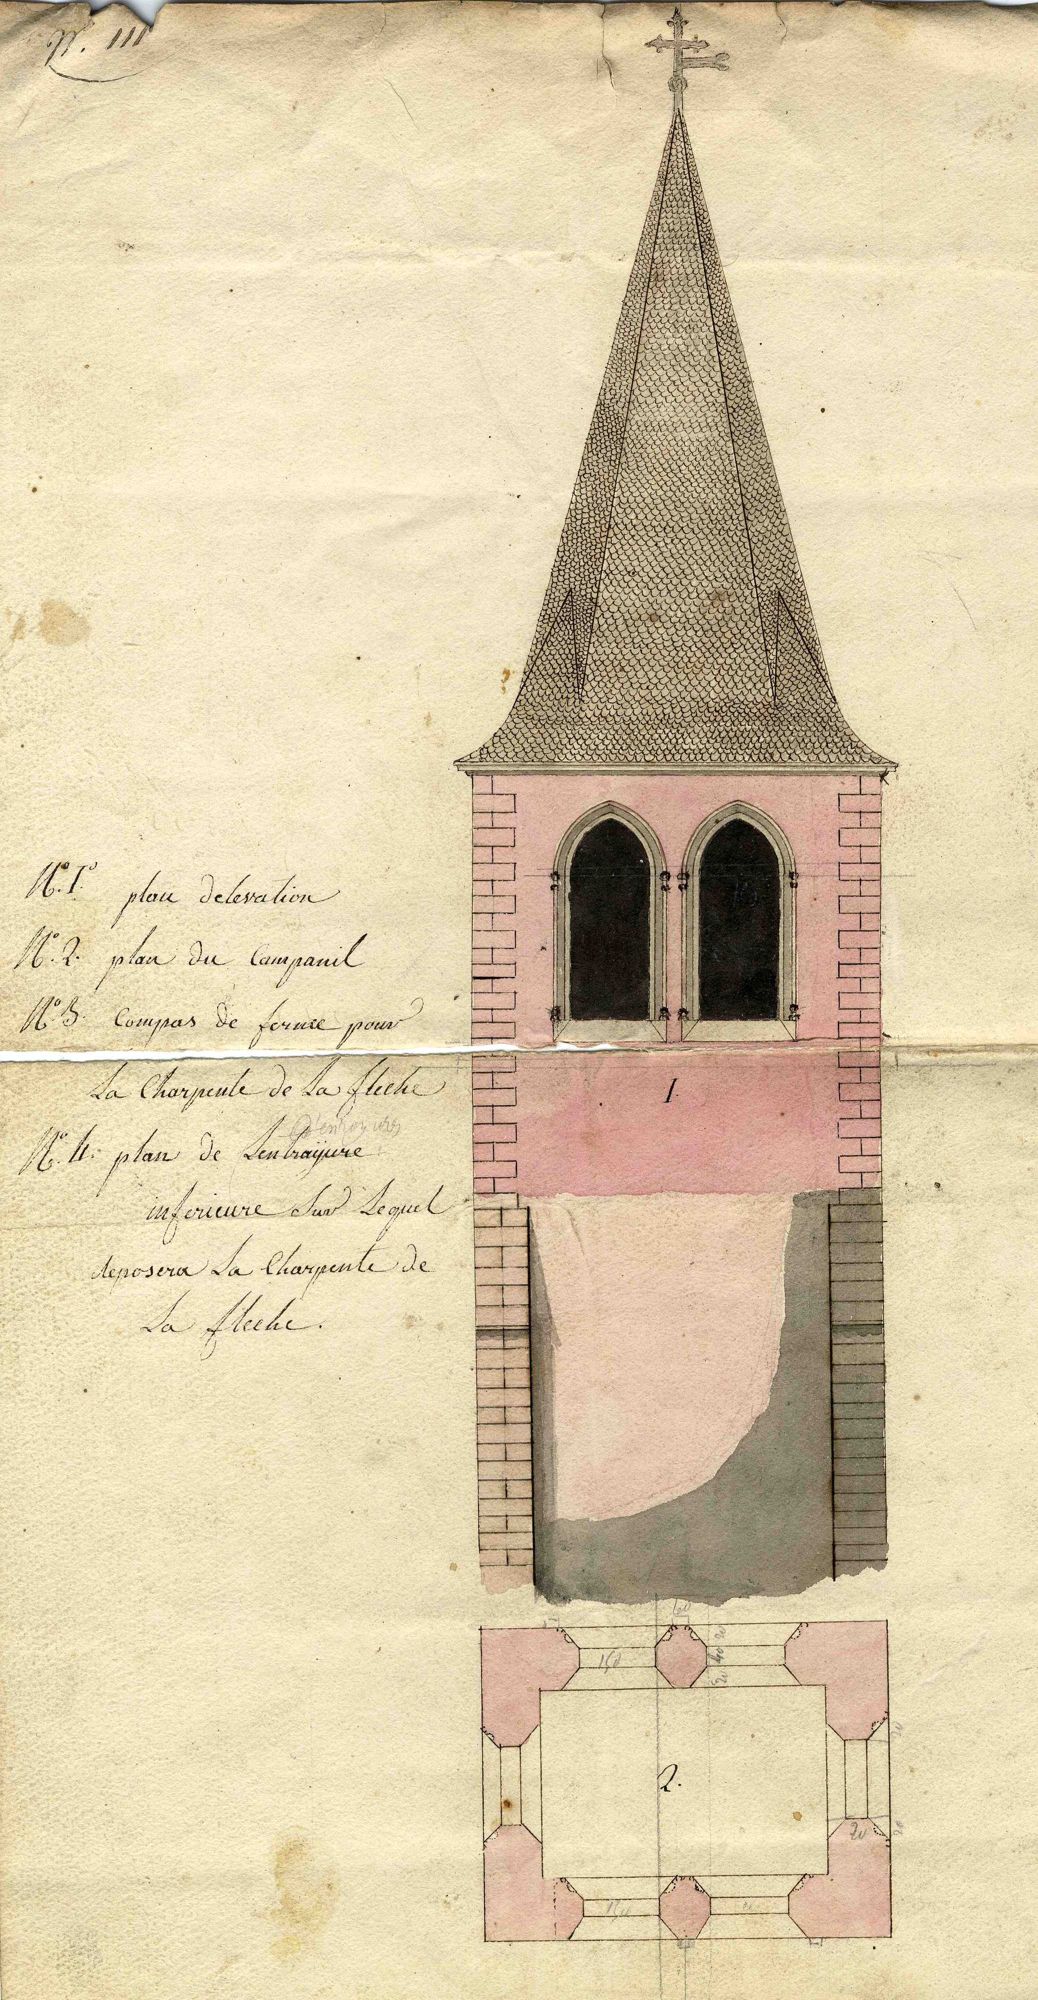 N. III
N° 1° plan delevation
N° 2. plan du Campanil
N° 3. Compas de ferme pour
La Charpente de La fleche
d'enrayure
N° 4. plan de Lentrayure
inferieure Sur Lequel
deposera La Charpente de
La fleche.
1.
60
150
20
40
20
2.
20
20
20
150